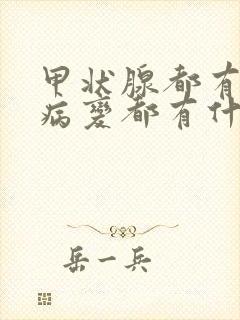 甲状腺都有
病变都有什
岳一兵